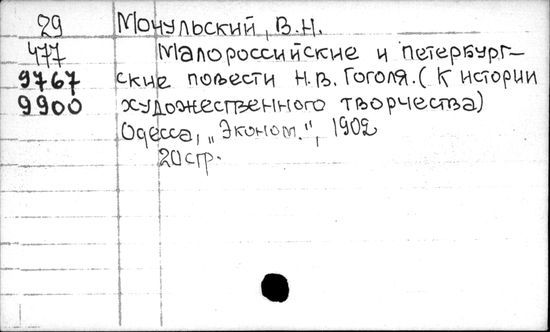 29 Мочульский, В.Н.
477 Малороссийские и петербург-
9767 ские повести Н.В. Гоголя. (К истории
9900 художественного творчества)
Одесса, „Эконом.", 1902
20 стр.